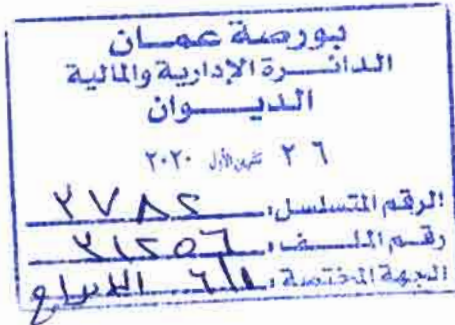 بورصة عمـان
الدائـــرة الإدارية والمالية
الديـــوان
٢٦ تشرين الأول ٢٠٢٠
الرقم المتسلسل: ٣٧٨٢
رقم الملــف: ٣١٢٥٦
الجهة المختصة: